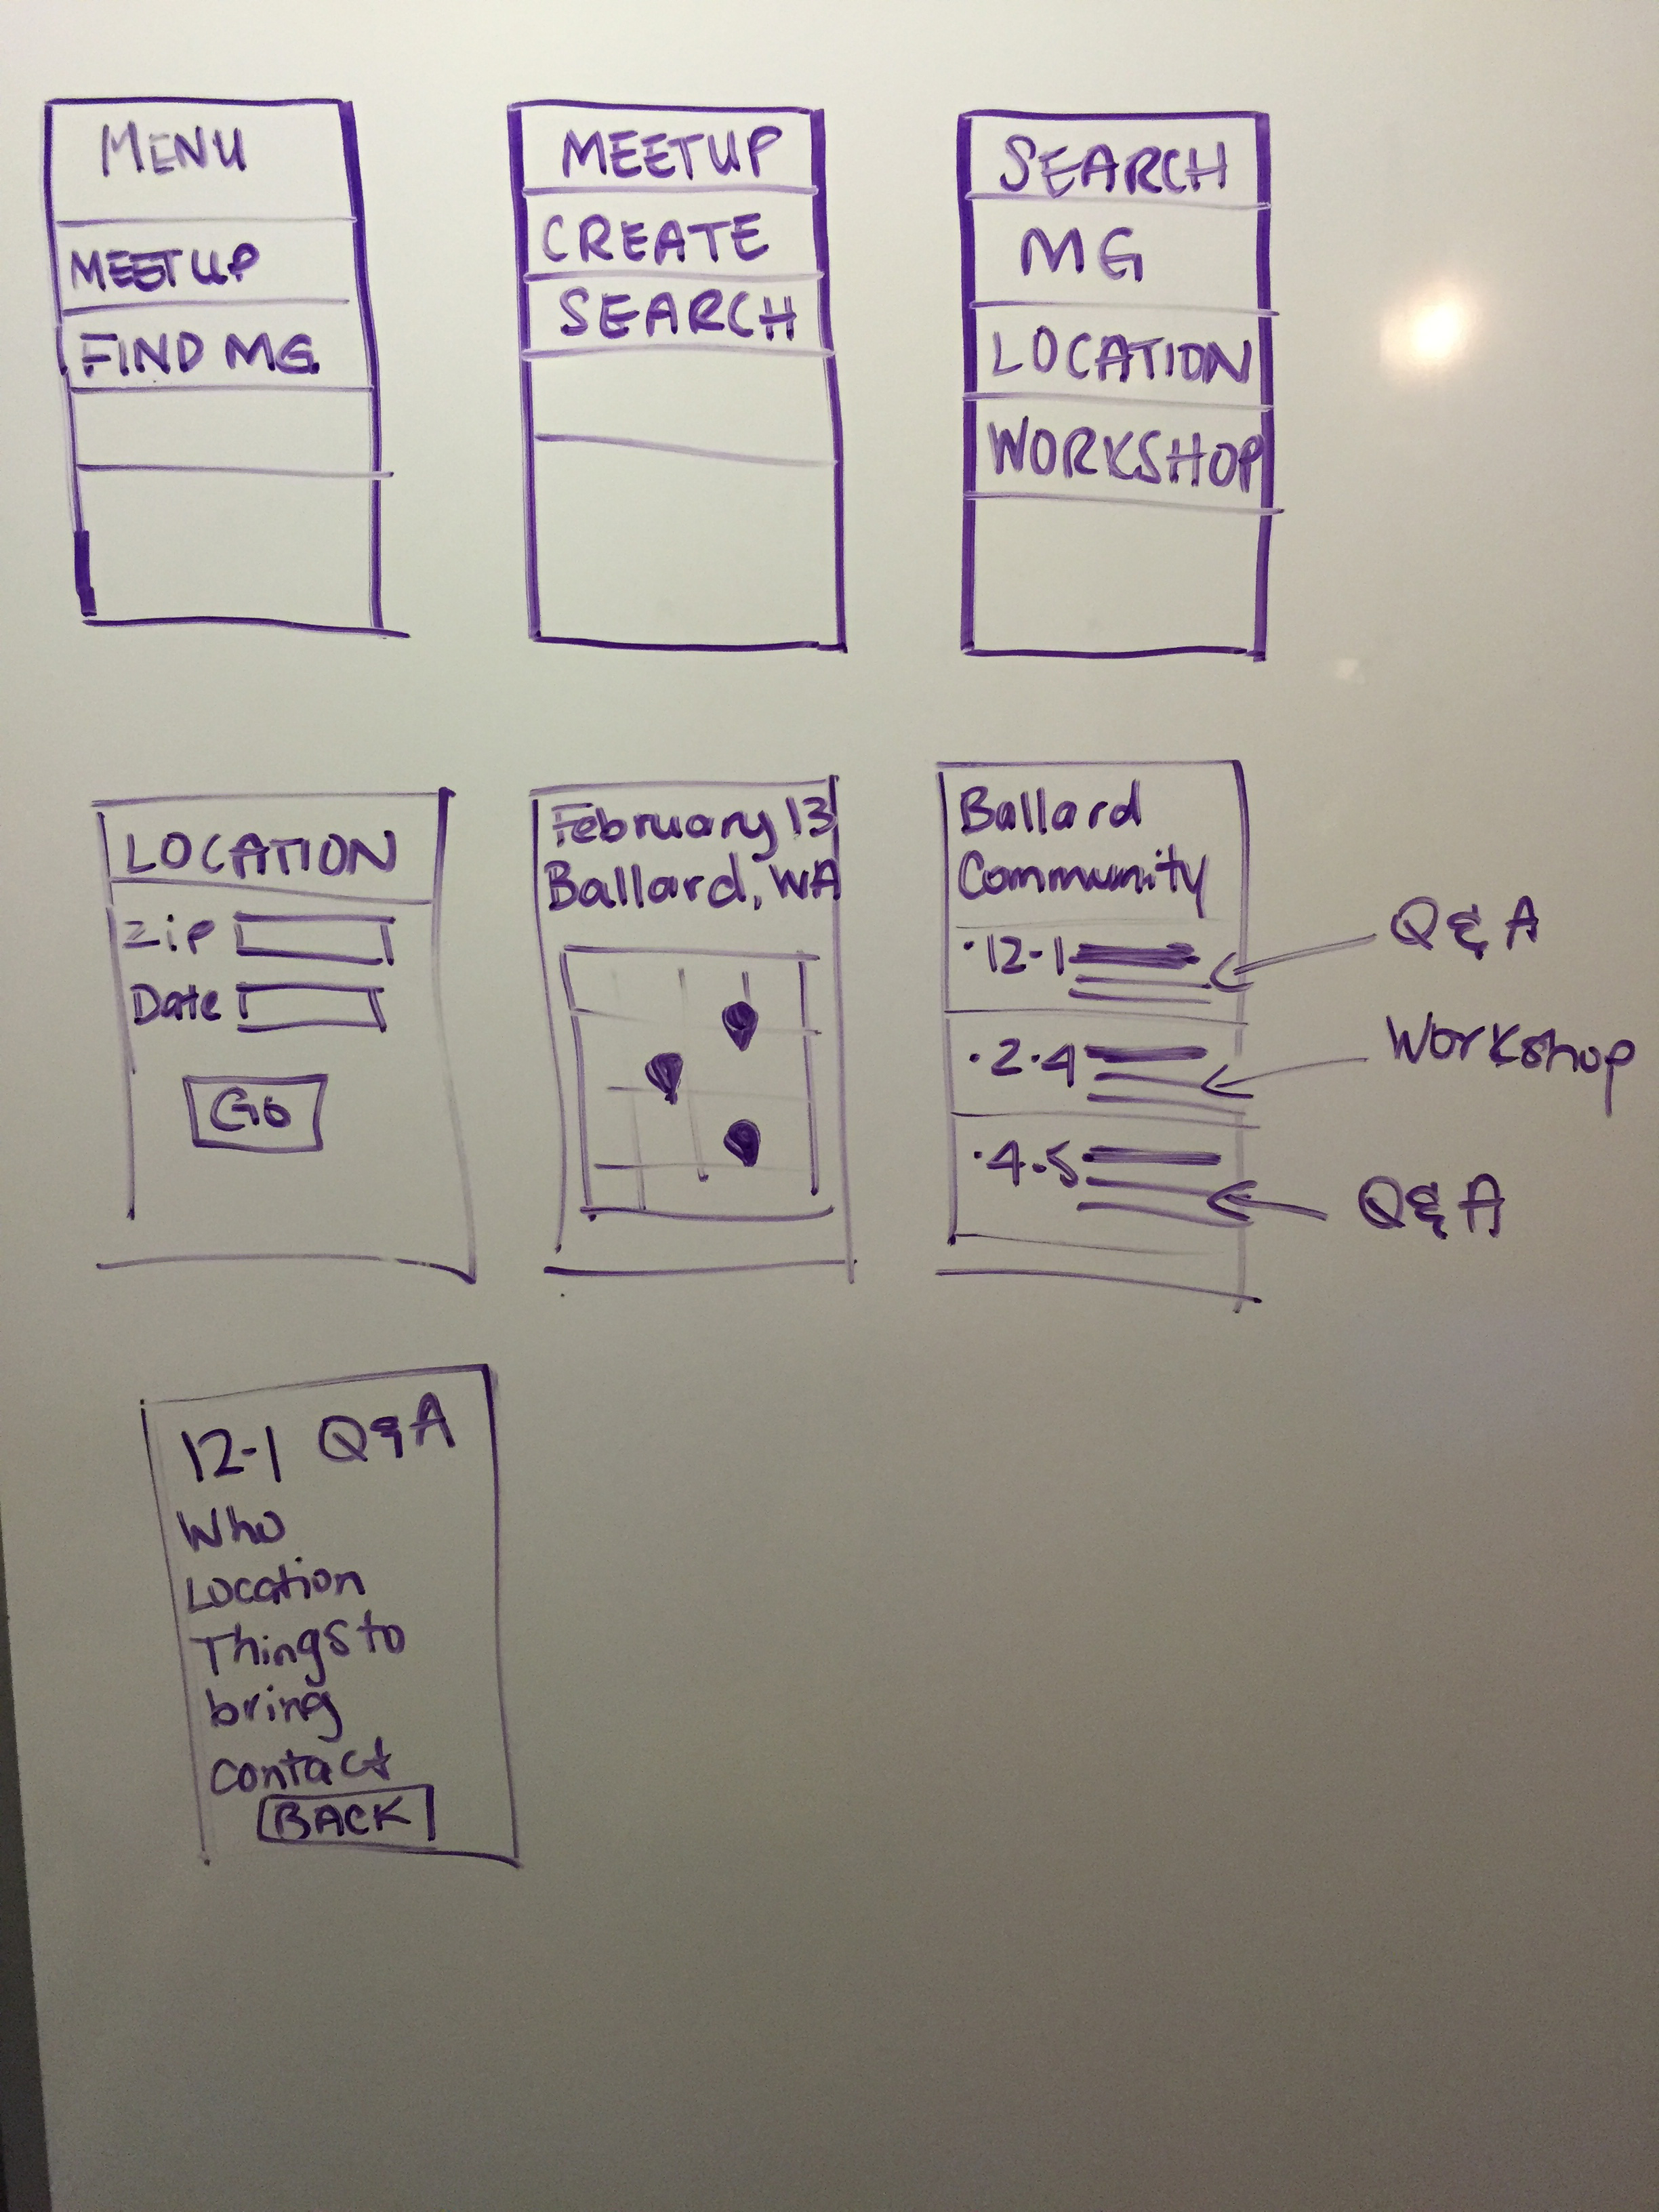 MENU
MEETUP
FIND MG
MEETUP
CREATE
SEARCH
SEARCH
MG
LOCATION
WORKSHOP
LOCATION
Zip
Date
Go
February 13
Ballard, WA
Ballard
Community
·12-1
·2-4
·4-5
Q&A
Workshop
Q&A
12-1 Q&A
Who
Location
Things to
bring
Contact
BACK